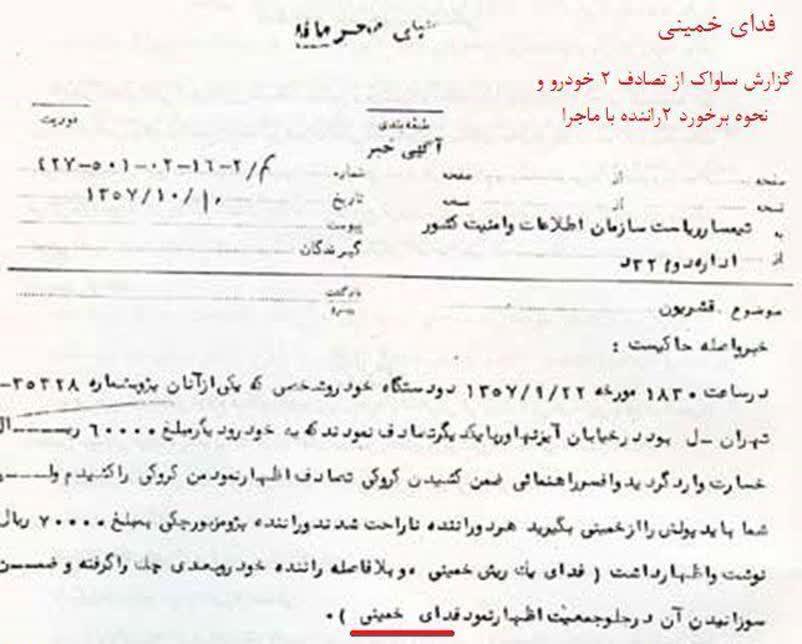 فدای خمینی
گزارش ساواک از تصادف ۲ خودرو و
نحوه برخورد ۲راننده با ماجرا
خیلی محرمانه
طبقه‌بندی
آگهی خبر
صفحه از صفحه شماره ۴۲۷-۵۰۱-۰۲-۱۶-۲/م
نسخه از نسخه تاریخ ۱۳۵۷/۱۰/۱۰
به تیمسار ریاست سازمان اطلاعات و امنیت کشور پیوست
از اداره دوم ۳۲د گیرندگان
موضوع . قشریون بازگشت
پیرو
خبر واصله حاکیست :
در ساعت ۱۸۳۰ مورخه ۱۳۵۷/۹/۲۲ دو دستگاه خودرو شخصی که یکی از آنان پژو بشماره ۳۵۳۲۸-
تهران -ل بود در خیابان آیزنهاور با یکدیگر تصادف نمودند که به خودرو دیگر مبلغ ۶۰۰۰۰ ریـــال
خسارت وارد گردید و افسر راهنمائی ضمن کشیدن کروکی تصادف اظهار نمود من کروکی را کشیدم و
شما باید پولش را از خمینی بگیرید هر دو راننده ناراحت شدند و راننده پژو مزبور چکی بمبلغ ۷۰۰۰۰ ریال
نوشت و اظهار داشت ( فدای یک ریش خمینی ) و بلافاصله راننده خودرو بعدی چک را گرفته و ضمـــن
سوزانیدن آن در جلو جمعیت اظهار نمود فدای خمینی ) .